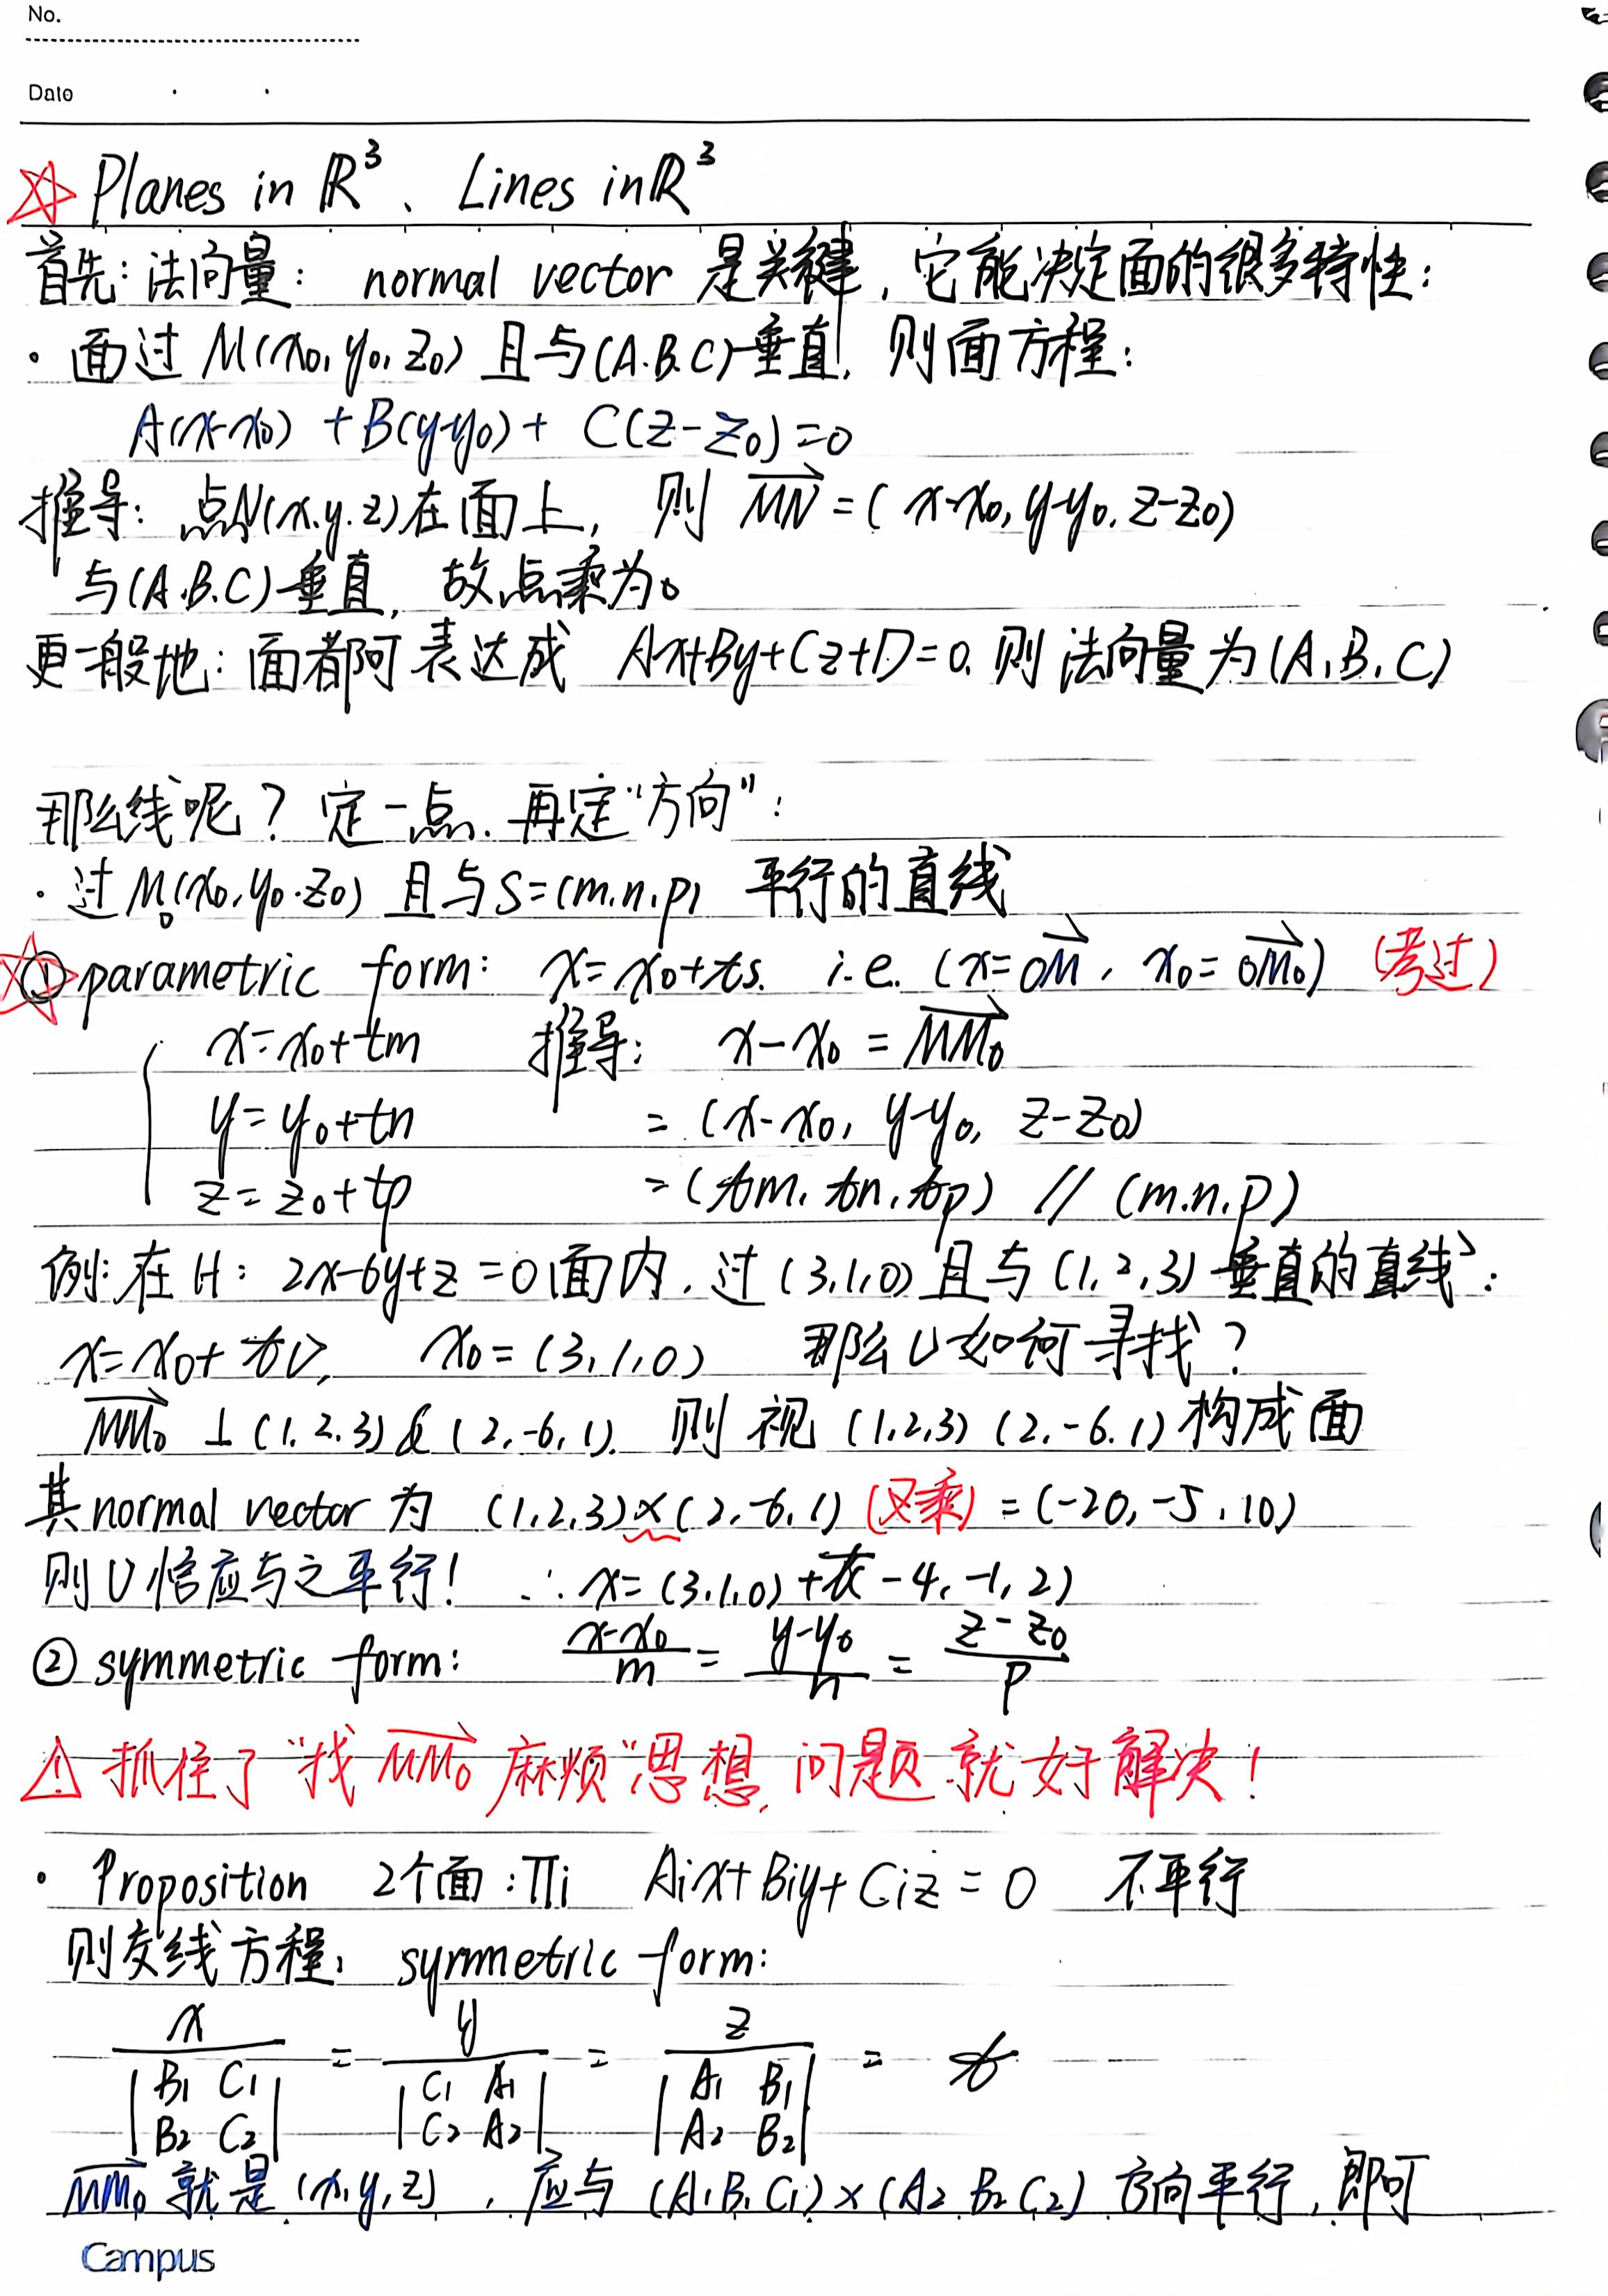 No.
Date
☆ Planes in ℝ³、Lines in ℝ³
首先:法向量: normal vector 是关键,它能决定面的很多特性:
· 面过 M(x₀, y₀, z₀) 且与(A.B.C)垂直, 则面方程:
A(x-x₀) + B(y-y₀) + C(z-z₀)=0
推导: 点N(x.y.z)在面上, 则 \overrightarrow{MN} = (x-x₀, y-y₀, z-z₀)
与(A.B.C)垂直, 故点乘为0
更一般地:面都可表达成 Ax+By+Cz+D=0. 则法向量为(A,B,C)
那么线呢? 定一点. 再定“方向”:
· 过M₀(x₀,y₀.z₀) 且与S=(m.n.p) 平行的直线
☆① parametric form: x=x₀+ts. i.e. (x=\overrightarrow{OM}, x₀=\overrightarrow{OM₀}) (考过)
x=x₀+tm 推导: x-x₀ = \overrightarrow{MM₀}
y=y₀+tn = (x-x₀, y-y₀, z-z₀)
z=z₀+tp = (tm, tn, tp) // (m.n.p)
例:在H: 2x-6y+z=0面内. 过(3,1,0)且与(1,2,3)垂直的直线:
x=x₀+tv, x₀=(3,1,0) 那么v如何寻找?
\overrightarrow{MM₀} ⊥ (1.2.3) & (2,-6,1). 则视(1,2,3) (2,-6.1)构成面
其normal vector为 (1,2,3)×(2,-6,1) (叉乘) = (-20,-5,10)
则v恰应与之平行! ∴x=(3,1,0)+t(-4,-1,2)
② symmetric form: \frac{x-x₀}{m} = \frac{y-y₀}{n} = \frac{z-z₀}{p}
⚠ 抓住了“找\overrightarrow{MM₀}麻烦”思想,问题就好解决!
· Proposition 2个面:Πi Aix+Biy+Ciz=0 不平行
则交线方程, symmetric form:
\frac{x}{\begin{vmatrix} B₁ & C₁ \\ B₂ & C₂ \end{vmatrix}} = \frac{y}{\begin{vmatrix} C₁ & A₁ \\ C₂ & A₂ \end{vmatrix}} = \frac{z}{\begin{vmatrix} A₁ & B₁ \\ A₂ & B₂ \end{vmatrix}} = t
\overrightarrow{MM₀} 就是(x,y,z), 应与(A₁B₁C₁)×(A₂B₂C₂)方向平行,即可
Campus